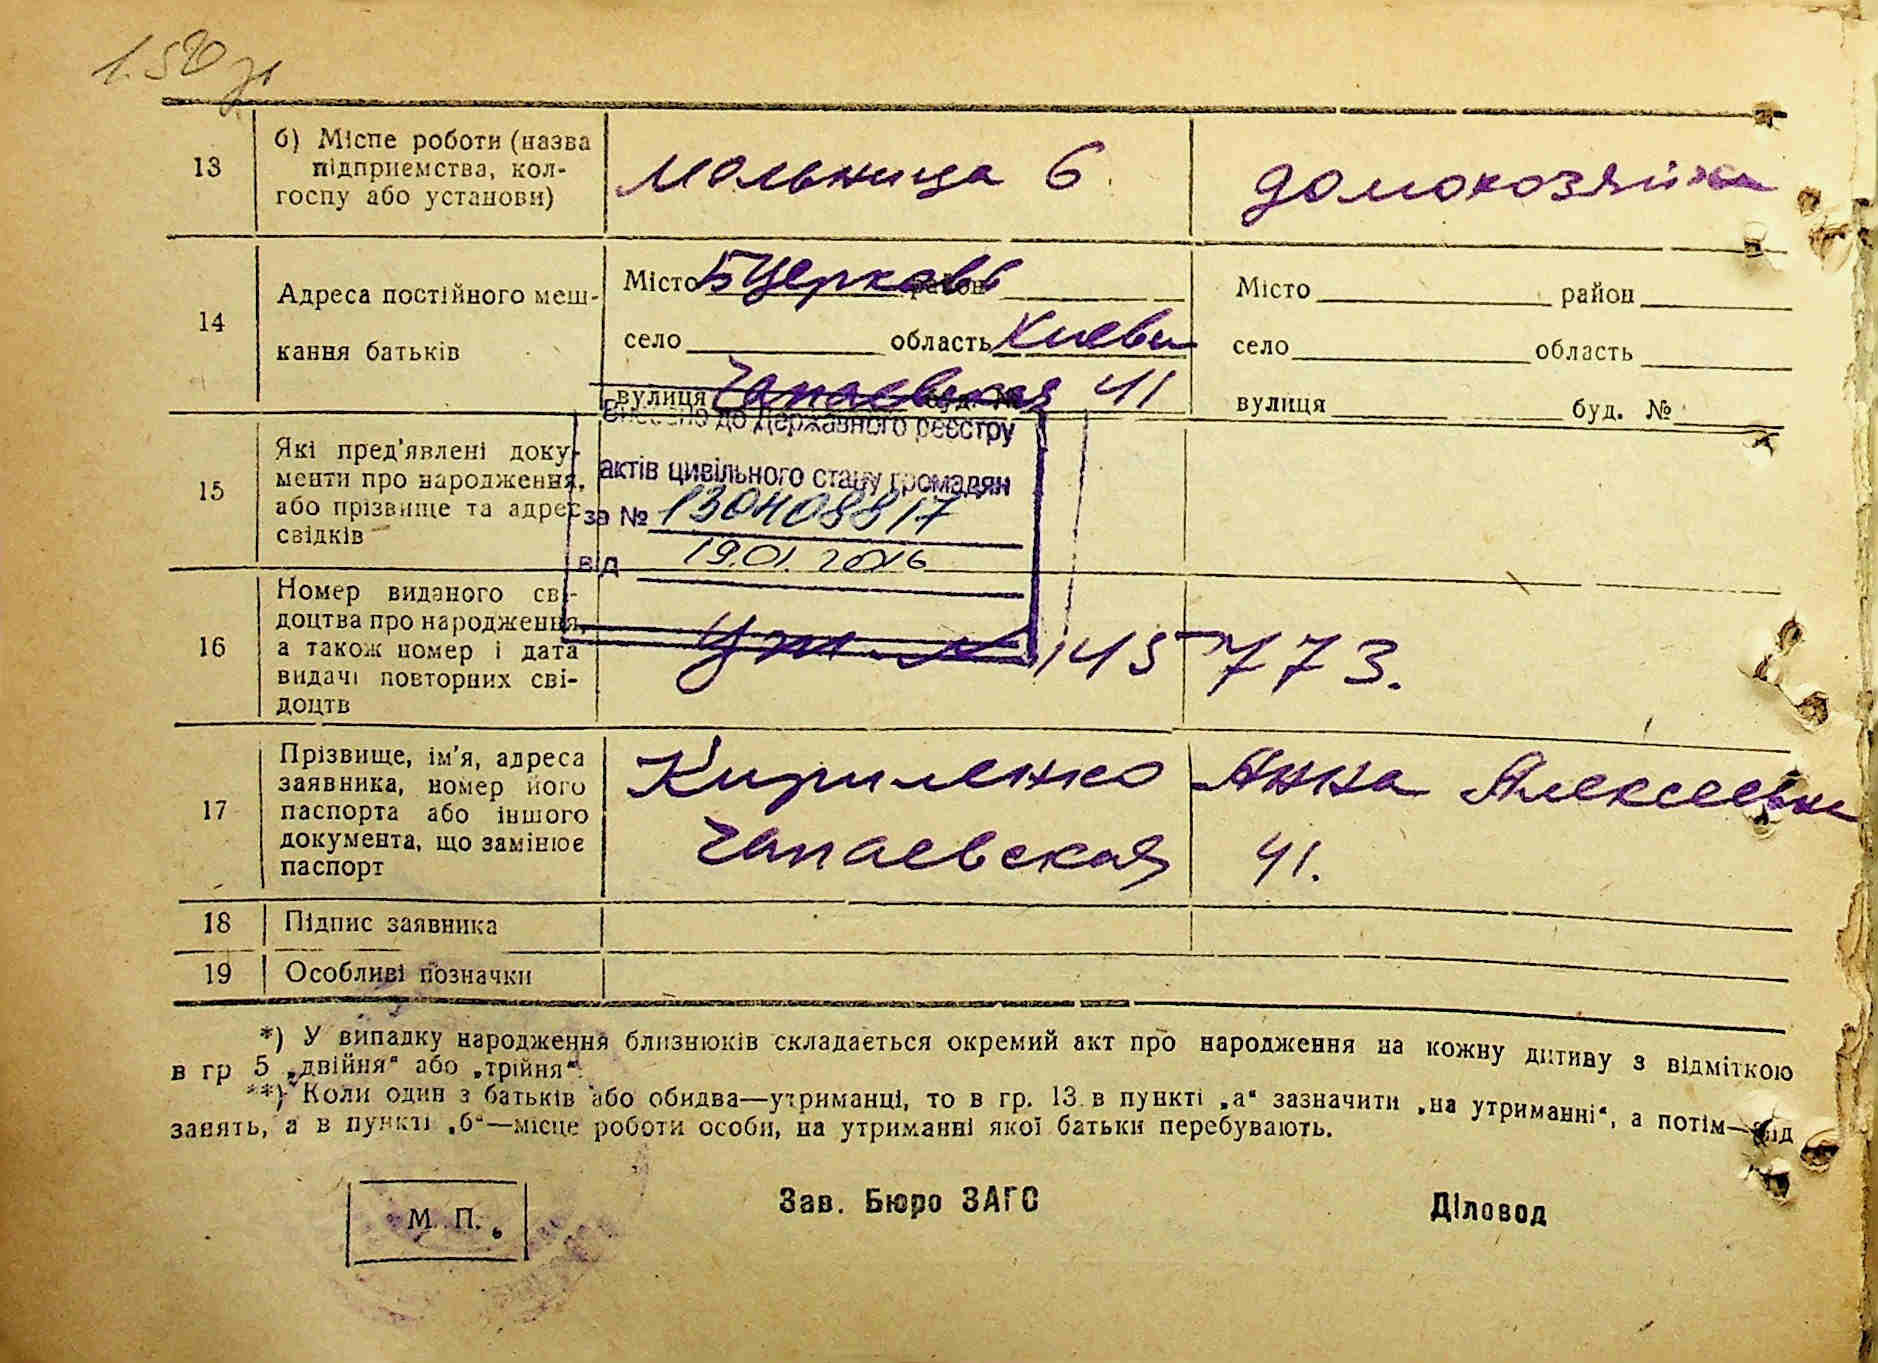 1.50
13
б) Місце роботи (назва
підприемства, кол-
госпу або установи)
Мельница 6.
домохозяйка
14
Адреса постійного меш-
кання батьків
Місто БЦерковь район
село область Киевск
вулиця Чапаевская буд. № 41
Місто район
село область
вулиця буд. №
15
Які пред'явлені доку-
менти про народження,
або прізвище та адрес
свідків
Внесено до Державного реєстру
актів цивільного стану громадян
за № 130408817
від 19.01.2016
16
Номер виданого сві-
доцтва про народження,
а також номер і дата
видачі повторних сві-
доцтв
145773.
17
Прізвище, ім'я, адреса
заявника, номер його
паспорта або іншого
документа, що замінює
паспорт
Кириленко Анна Алексеевна
Чапаевская 41.
18
Підпис заявника
19
Особливі позначки
*) У випадку народження близнюків складається окремий акт про народження на кожну дитину з відміткою
в гр 5 „двійня“ або „трійня“.
**) Коли один з батьків або обидва—утриманці, то в гр. 13 в пункті „а“ зазначити „на утриманні“, а потім—рід
занять, а в пункті „б“—місце роботи особи, на утриманні якої батьки перебувають.
М. П.
Зав. Бюро ЗАГС
Діловод